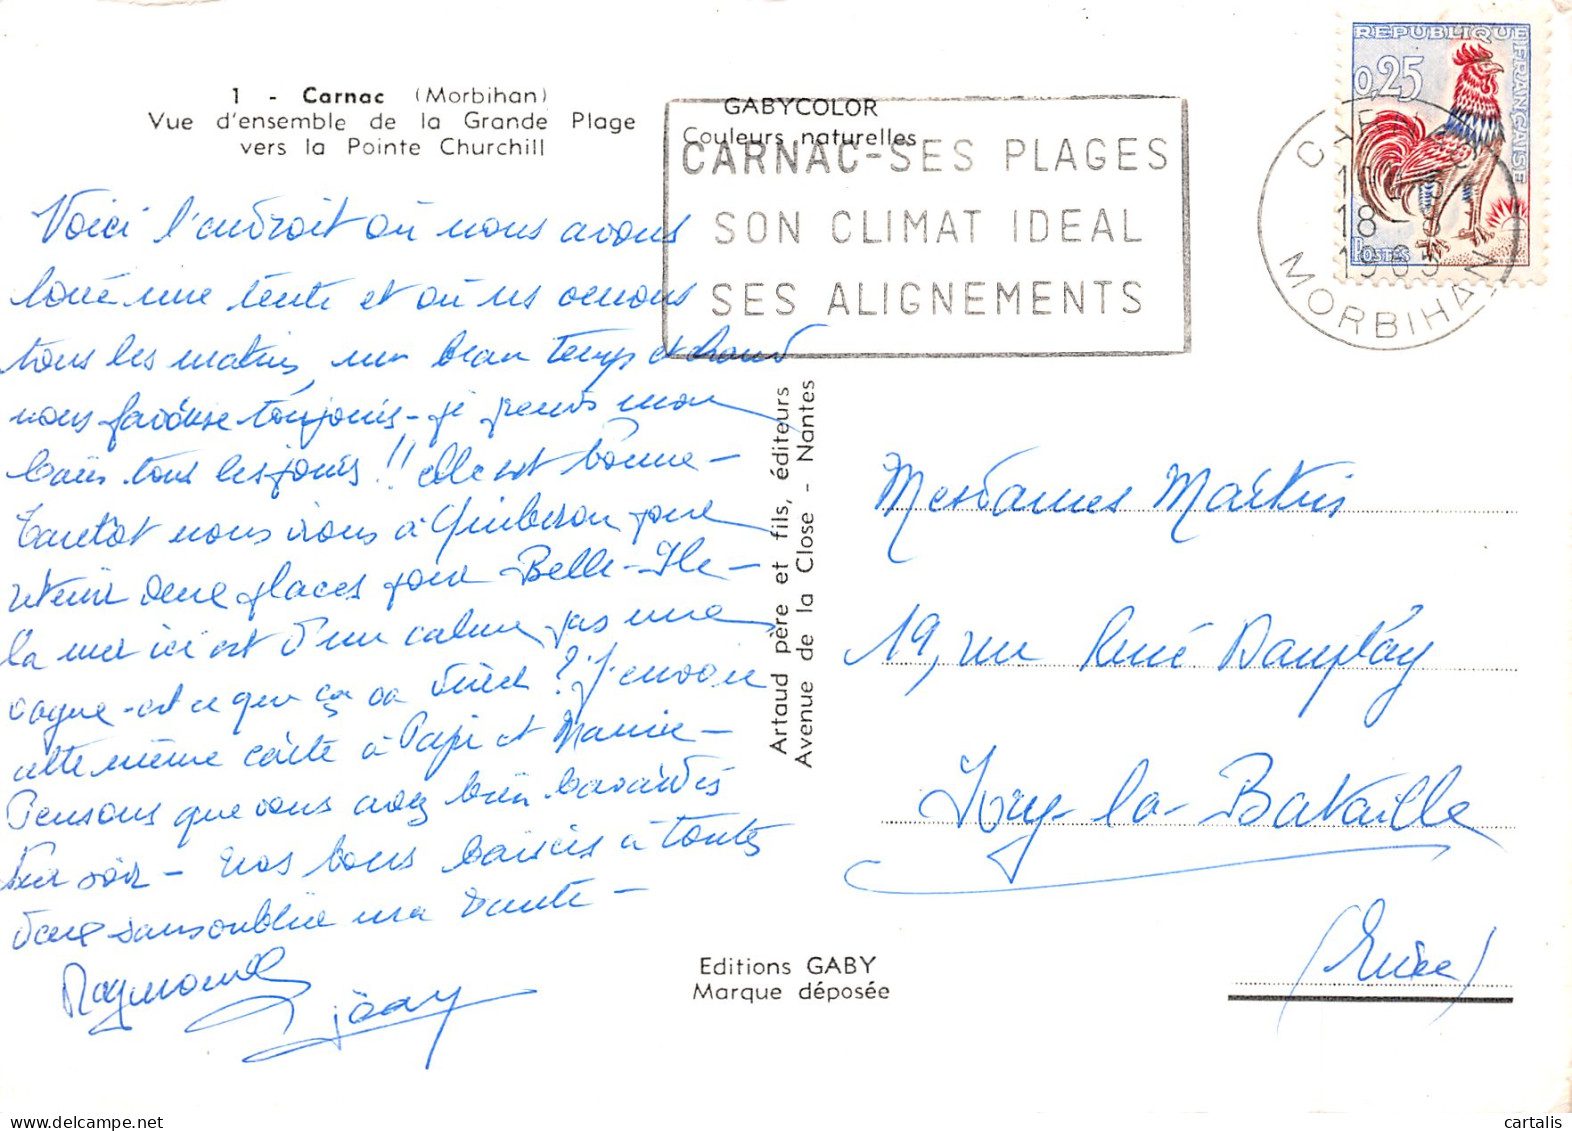 1 - Carnac (Morbihan)
Vue d'ensemble de la Grande Plage
vers la Pointe Churchill
GABYCOLOR
Couleurs naturelles
CARNAC-SES PLAGES
SON CLIMAT IDEAL
SES ALIGNEMENTS
REPUBLIQUE FRANÇAISE
0,25
POSTES
18
MORBIHAN
Voici l'endroit où nous avons
loué une tente et où ns venons
tous les matins, un beau temps et chaud
nous favorise toujours - je prends mon
bain tous les jours !! elle est bonne -
Tantôt nous irons à Quiberon pour
retenir deux places pour Belle-Ile -
La mer ici est d'un calme pas une
vague - est ce que ça va durer ? J'envoie
cette même carte à Papi et Mamie -
Pensons que vous avez bien bavardés
hier soir - Nos bons baisers à toutes
deux sans oublier ma Tante -
Raymonde
Artaud père et fils, éditeurs
Avenue de la Close - Nantes
Mesdames Martin
19, rue René Dauplay
Ivry-la-Bataille
(Eure)
Editions GABY
Marque déposée
cartalis